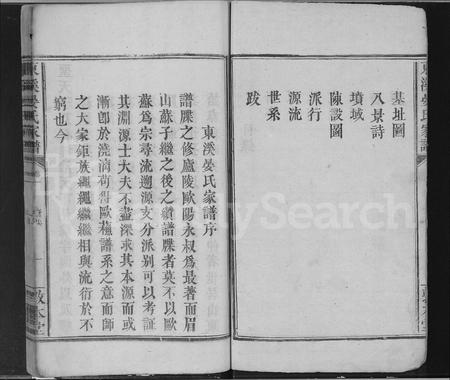 東溪晏氏家譜
基址圖
八景詩
墳域
陳設圖
派行
源流
世系
跋
東溪晏氏家譜序
譜牒之修廬陵歐陽永叔爲最著而眉
山蘇子繼之後之纘譜牒者莫不以歐
蘇爲宗尋流遡源支分派别可以考証
其淵源士大夫不盡深求其本源而或
漸卽於澆漓苟得歐蘓譜系之意而師
之大家鉅族繩繩繼繼相與流衍於不
窮也今
東溪晏氏家譜
敦本堂